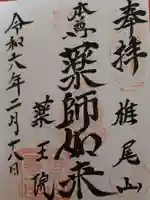 奉拝
椎尾山
本尊
薬師如来
薬王院
令和六年二月十八日